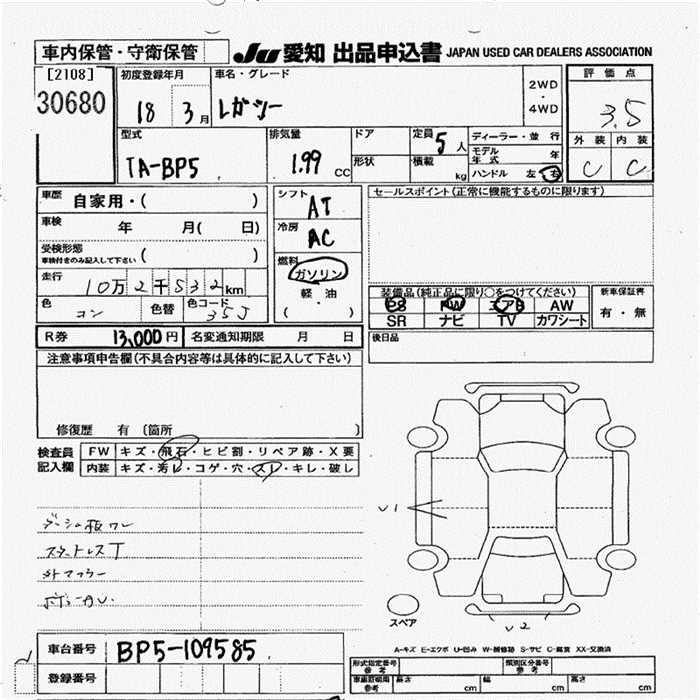 車内保管・守衛保管
JU 愛知 出品申込書 JAPAN USED CAR DEALERS ASSOCIATION
[2108]
30680
初度登録年月
18 3月
車名・グレード
レガシー
2WD
・
4WD
評価点
3.5
外装 内装
C C
型式
TA-BP5
排気量
1.99 CC
ドア
形状
定員 5 人
積載 kg
ディーラー・並行
モデル年式 年
ハンドル 左 右
車歴 自家用・( )
車検 年 月( 日)
受検形態
車検付きのみ記入して下さい ( )
走行 10万2千532km
色 コン 色替 色コード 35J
シフト AT
冷房 AC
燃料
ガソリン
・
軽油
( ・ )
セールスポイント(正常に機能するものに限ります)
装備品(純正品に限り○をつけてください)
PS PW エアB AW
SR ナビ TV カワシート
新車保証書
有・無
後日品
R券 13,000円 名変通知期限 月 日
注意事項申告欄(不具合内容等は具体的に記入して下さい)
修復歴 有 〔箇所 〕
検査員記入欄
FW キズ・飛石・ヒビ割・リペア跡・X要
内装 キズ・汚レ・コゲ・穴・スレ・キレ・破し
ダッシュ板ワレ
ステンレスT
外マフラー
V1
スペア
V2
A-キズ E-エクボ U-凹み W-補修跡 S-サビ C-腐食 XX-交換済
車台番号 BP5-109585
登録番号
形式指定番号 参考
類別区分番号 参考
車庫証明用 参考 長さ cm 幅 cm 高さ cm